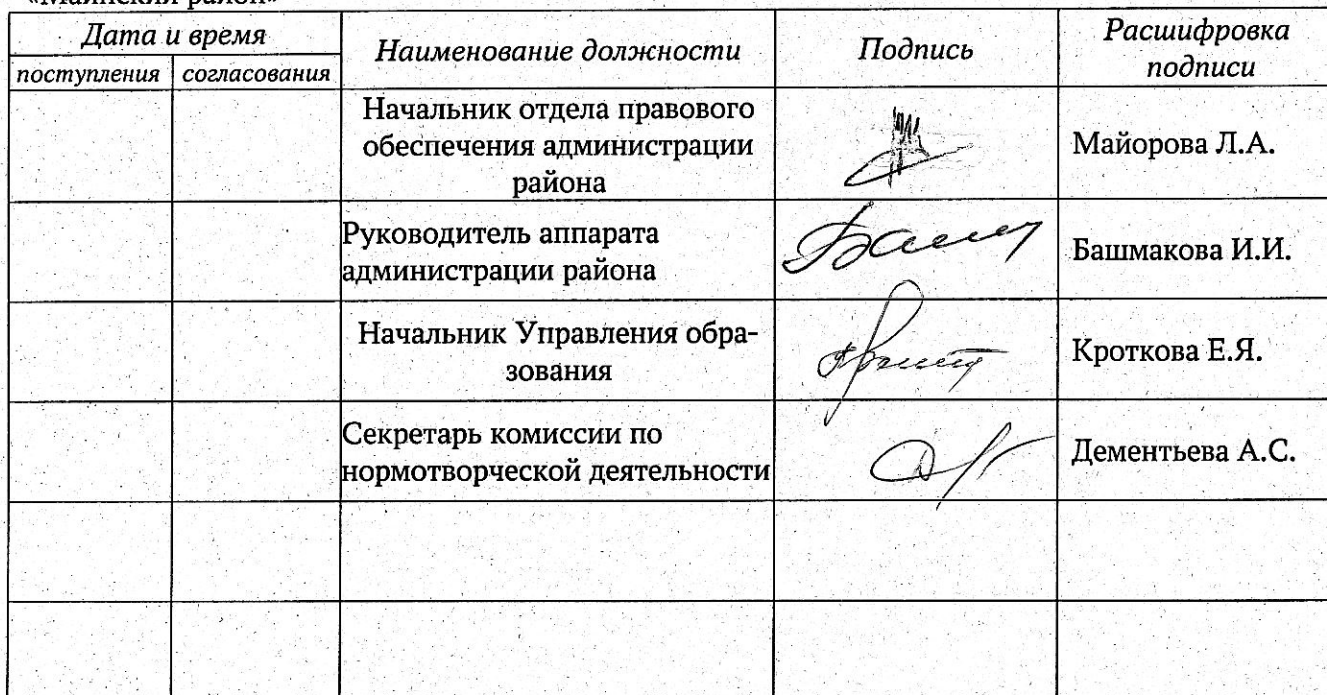 «Майнский район»
Дата и время
Наименование должности
Подпись
Расшифровка
подписи
поступления
согласования
Начальник отдела правового
обеспечения администрации
района
Майорова Л.А.
Руководитель аппарата
администрации района
Башмакова И.И.
Начальник Управления обра-
зования
Кроткова Е.Я.
Секретарь комиссии по
нормотворческой деятельности
Дементьева А.С.